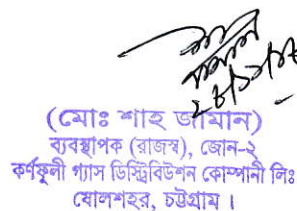 (মোঃ শাহ জামান)
ব্যবস্থাপক (রাজস্ব), জোন-২
কর্ণফুলী গ্যাস ডিস্ট্রিবিউশন কোম্পানী লিঃ
ষোলশহর, চট্টগ্রাম ।